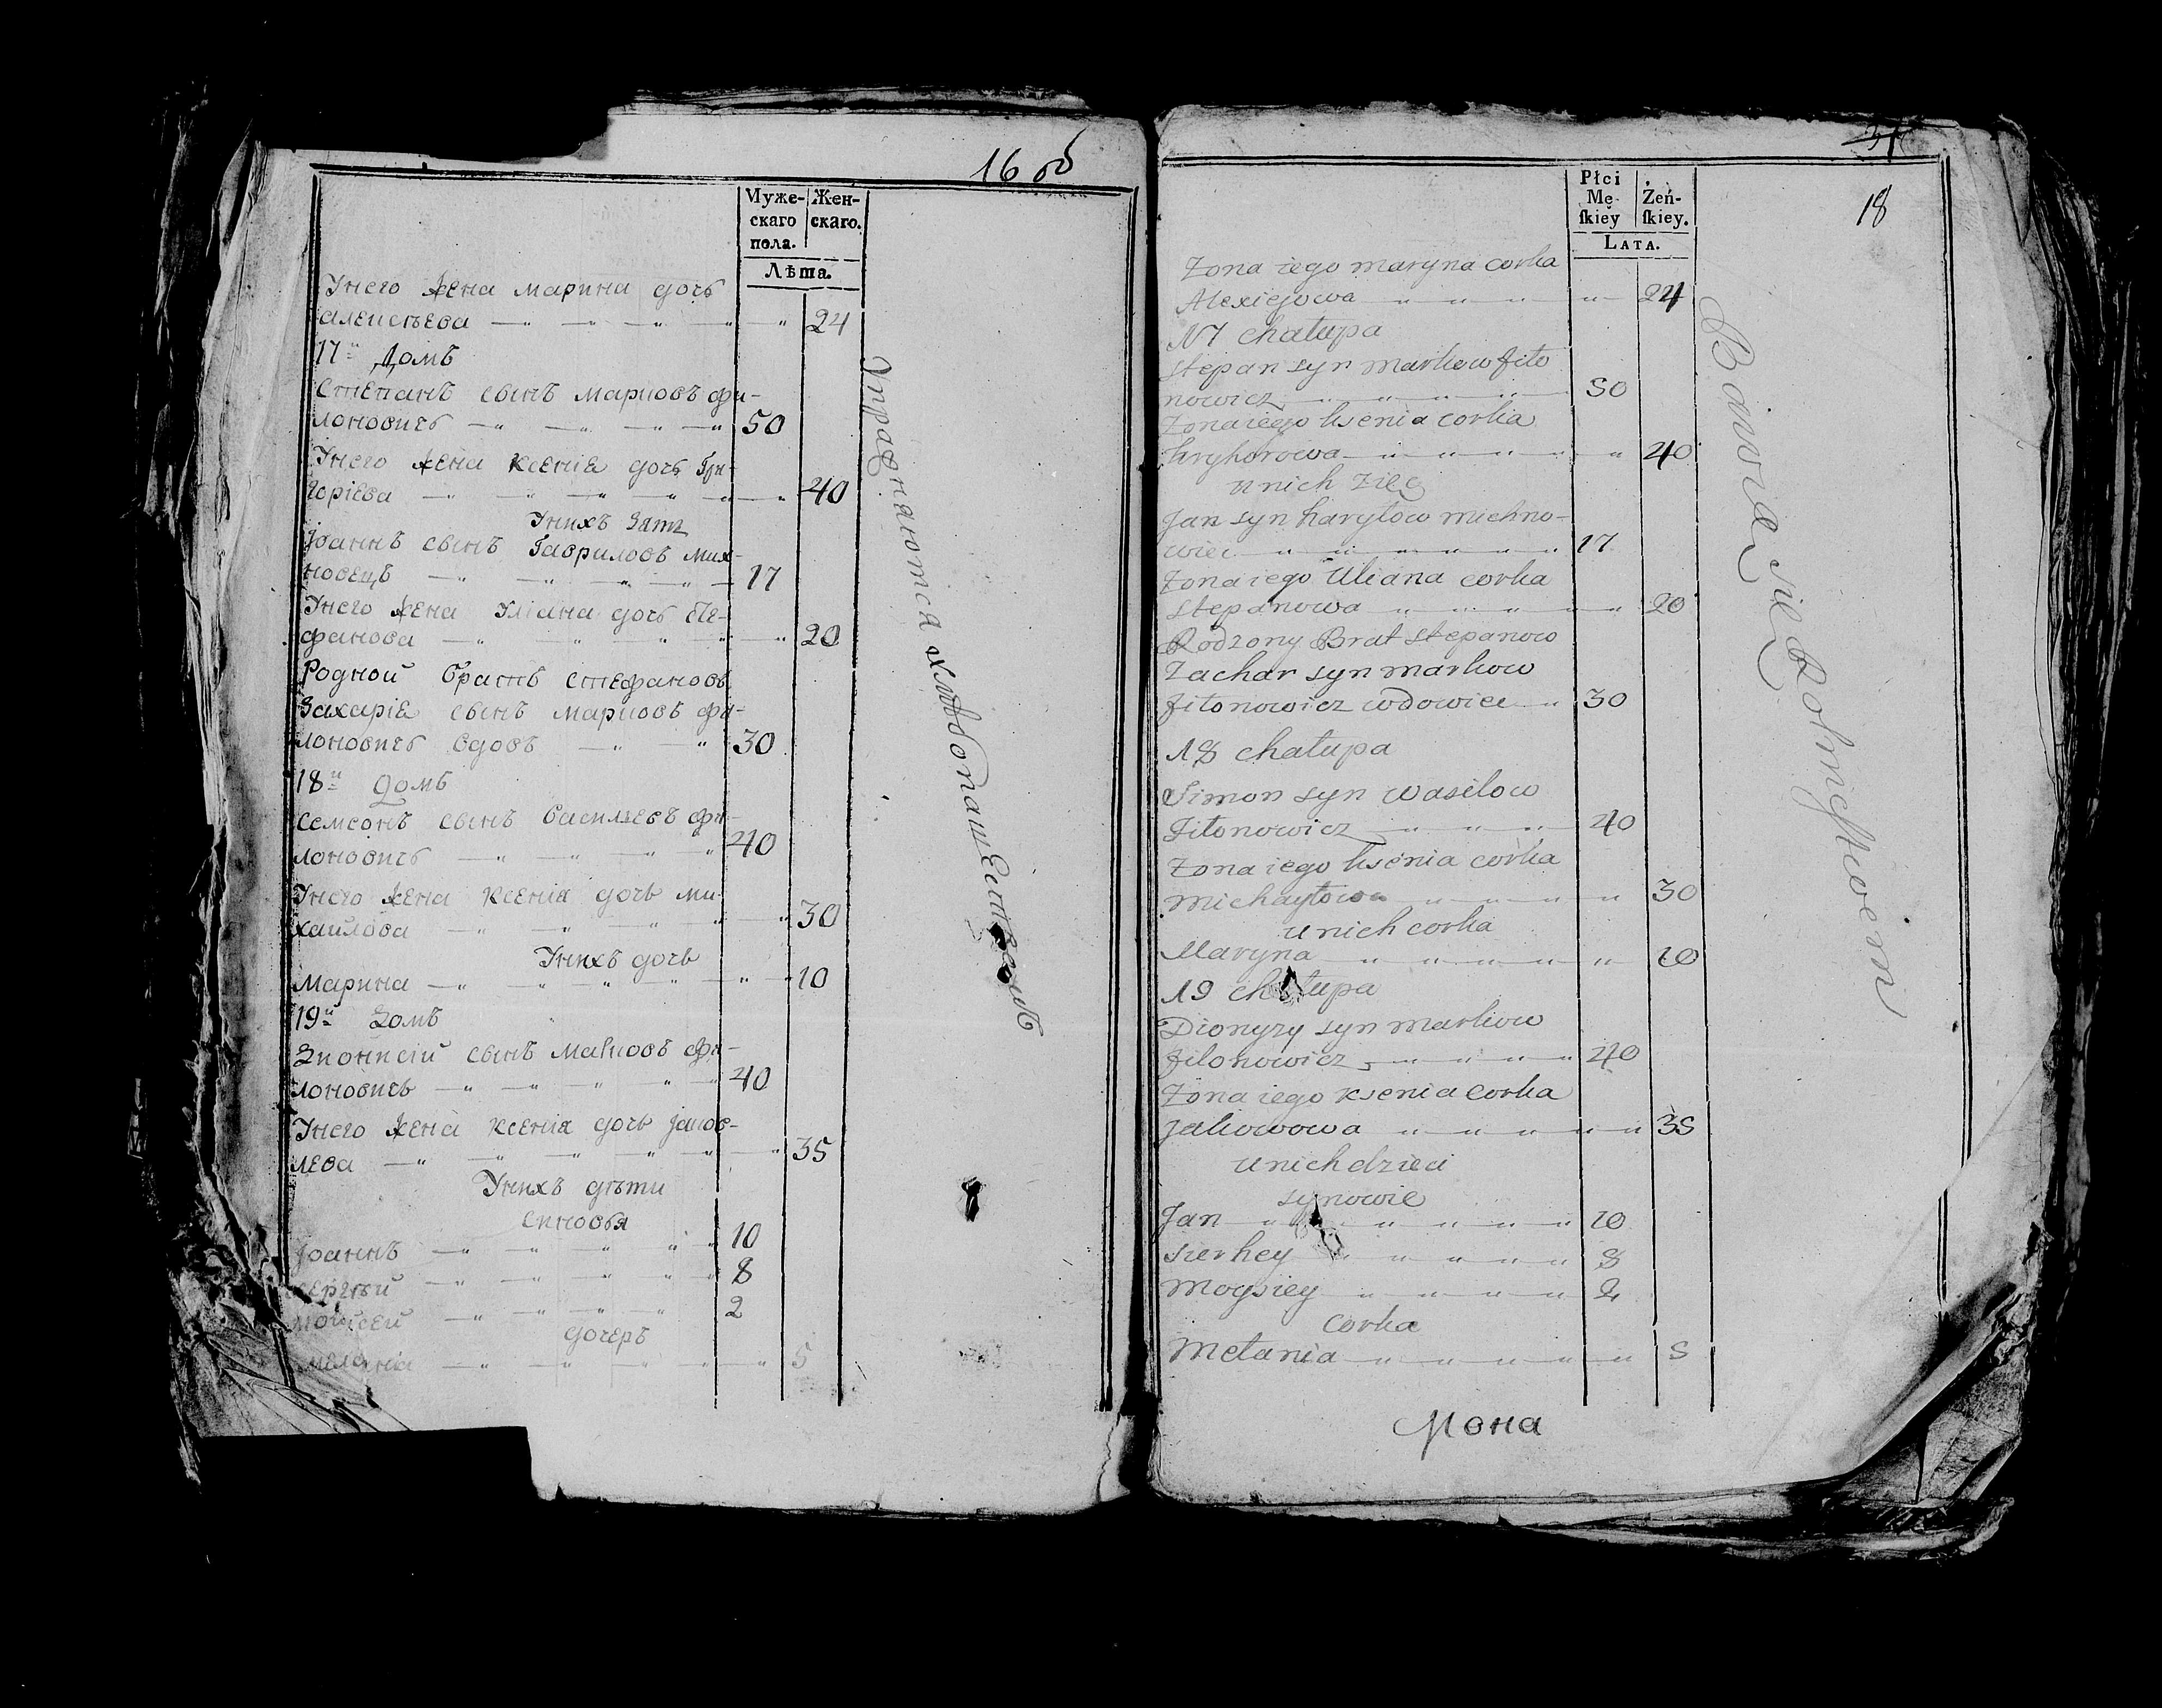 16 об
Мужескаго пола.
Женскаго.
Лѣта.
У него жена марина дочь
алексѣева 24
17й домъ
Степанъ сынъ марковъ фи-
лоновичъ 50
У него жена ксенія дочь Гри-
горіева 40
У нихъ Зять
Іоаннъ сынъ Гавриловъ мих-
новецъ 17
У него жена Уліана дочь Сте-
фанова 20
Родной братъ стефановъ
Захарія сынъ марковъ фи-
лоновичъ вдовъ 30
18й домъ
Семеонъ сынъ васильевъ фи-
лоновичъ 40
У него жена ксенія дочь ми-
хаилова 30
У нихъ дочь
Марина 10
19й домъ
Діонисій сынъ марковъ фи-
лоновичъ 40
У него жена ксенія дочь јаков-
лева 35
У нихъ дѣти
синовья
Іоаннъ 10
сергѣй 8
мойсей 2
дочеръ
меланія 5
Упражняются хлѣбопашествомъ
34
18
Płci Męſkiey
Żeńſkiey.
LATA.
Żona iego maryna corka
Alexiejowa 24
17 chałupa
Stepan syn markow fiło
nowicz 50
Żona iego ksenia corka
hryhorowa 40
u nich Zięc
Jan syn havryłow michno-
wiec 17
Żona iego Uliana corka
Stepanowa 20
Rodzony Brat Stepanow
Zachar syn markow
fiłonowicz wdowiec 30
18 chałupa
Simon syn wasilow
fiłonowicz 40
Żona iego ksenia corka
michayłowa 30
u nich corka
Maryna 10
19 chałupa
Dionyzy syn markow
filonowicz 40
Żona iego ksenia corka
Jakowowa 35
u nich dzieci
synowie
Jan 10
Sierhey 8
Moysiey 2
Corka
Metania 5
Bawią się Rolnictwem
Мона